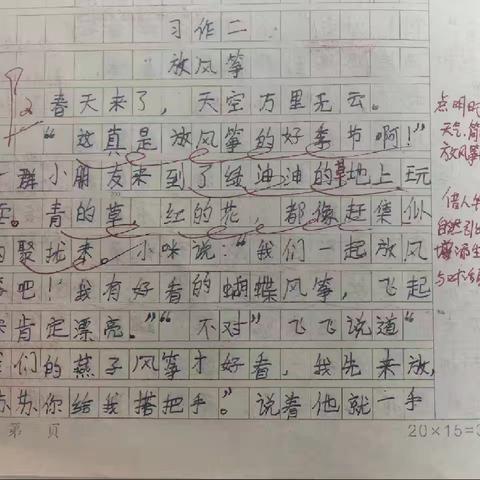 习作二
放风筝
春天来了，天空万里无云。
“这真是放风筝的好季节啊！”
一群小朋友来到了绿油油的草地上玩
青的草，红的花，都像赶集似
的聚拢来。小咪说：“我们一起放风
筝吧！我有好看的蝴蝶风筝，飞起
来肯定漂亮。”“不对”飞飞说道“
我们的燕子风筝才好看，我先来放，
苏苏你给我搭把手。”说着他就一手
第 页
20×15=3
点明时
天气，简
放风筝
借人物
自然引出
增添生